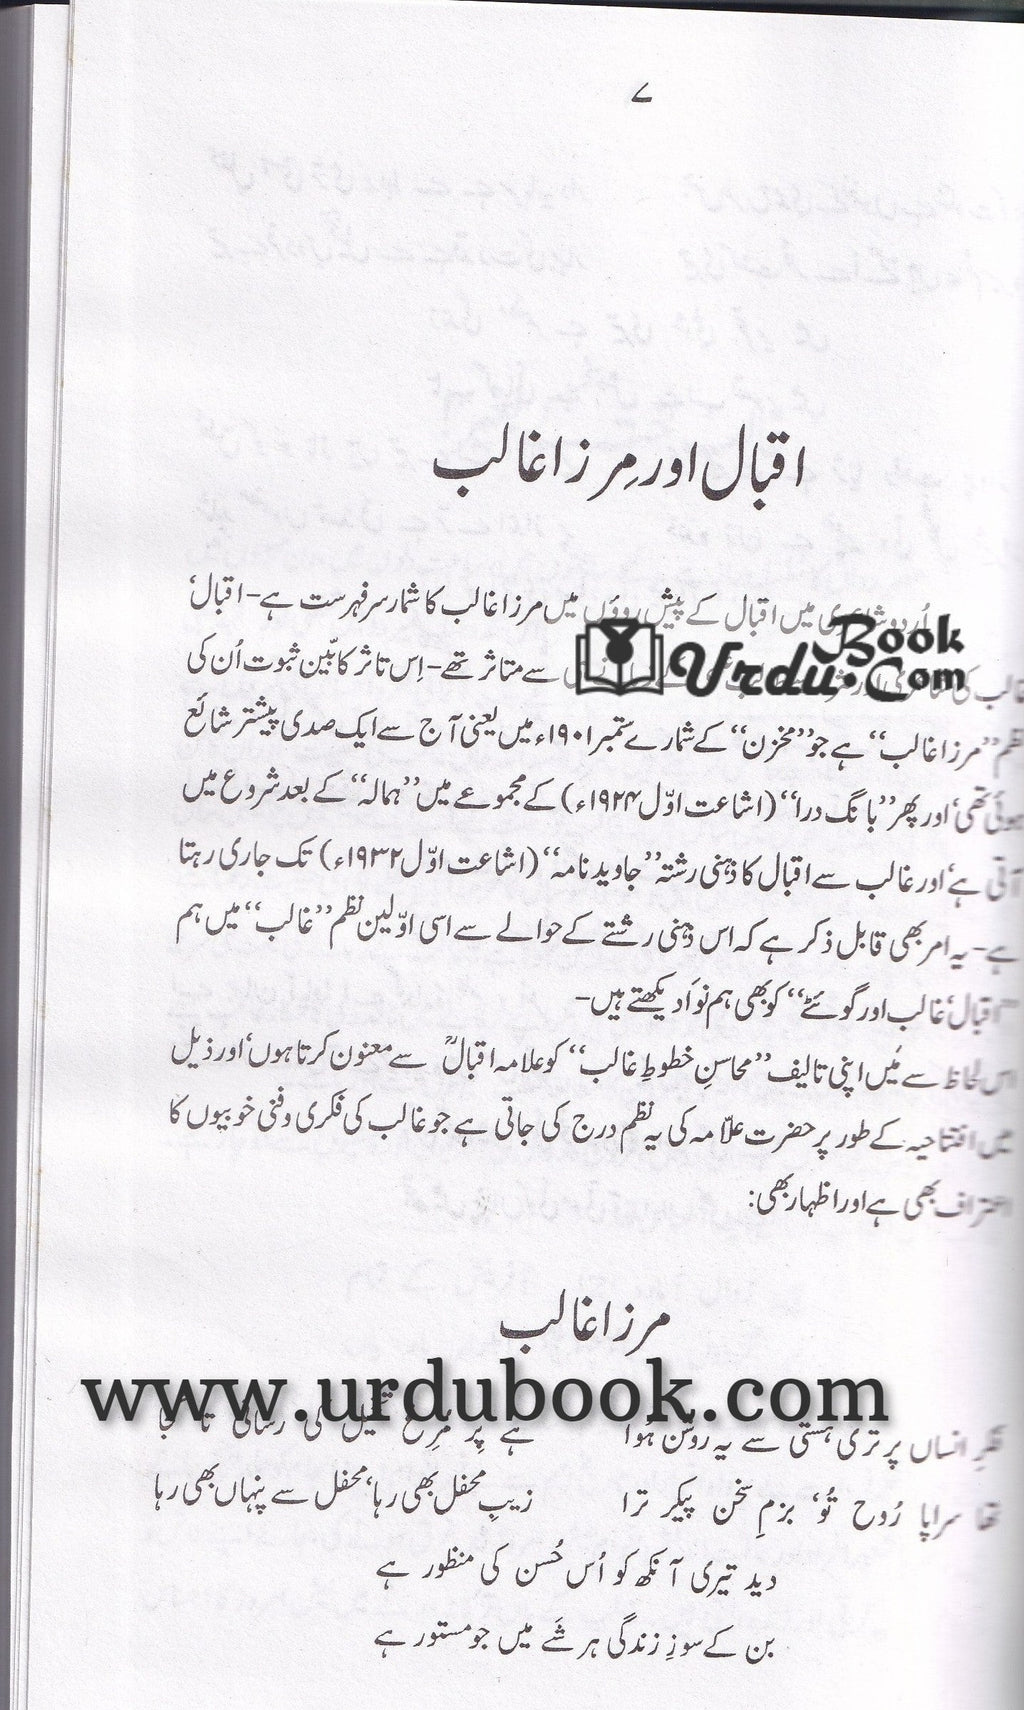 ۷
اقبال اور مِرزا غالب
اُردو شاعری میں اقبال کے پیش روؤں میں مرزا غالب کا شمار سرفہرست ہے۔ اقبال،
Book
Urdu.Com
غالب کی سے متاثر تھے۔ اِس تاثر کا بیّن ثبوت اُن کی
نظم ”مرزا غالب“ ہے جو ”مخزن“ کے شمارے ستمبر ۱۹۰۱ء میں یعنی آج سے ایک صدی پیشتر شائع
ہوئی تھی، اور پھر ”بانگ درا“ (اشاعت اوّل ۱۹۲۴ء) کے مجموعے میں ”ہمالہ“ کے بعد شروع میں
آتی ہے، اور غالب سے اقبال کا ذہنی رشتہ ”جاوید نامہ“ (اشاعت اوّل ۱۹۳۲ء) تک جاری رہتا
ہے۔ یہ امر بھی قابل ذکر ہے کہ اس ذہنی رشتے کے حوالے سے اسی اوّلین نظم ”غالب“ میں ہم
”اقبال، غالب اور گوئٹے“ کو بھی ہم نوَا دیکھتے ہیں۔
اس لحاظ سے مَیں اپنی تالیف ”محاسنِ خطوطِ غالب“ کو علامہ اقبالؒ سے معنون کرتا ہوں، اور ذیل
میں افتتاحیہ کے طور پر حضرت علاّمہ کی یہ نظم درج کی جاتی ہے جو غالب کی فکری و فنی خوبیوں کا
اعتراف بھی ہے اور اظہار بھی:
مرزا غالب
www.urdubook.com
فکرِ انساں پر تری ہستی سے یہ روشن ہُوا ہے پرِ مرغِ تخیل کی رسائی تا کجا
تھا سراپا رُوح تُو، بزمِ سخن پیکر ترا زیبِ محفل بھی رہا، محفل سے پنہاں بھی رہا
دید تیری آنکھ کو اُس حُسن کی منظور ہے
بن کے سوزِ زندگی ہر شَے میں جو مستور ہے